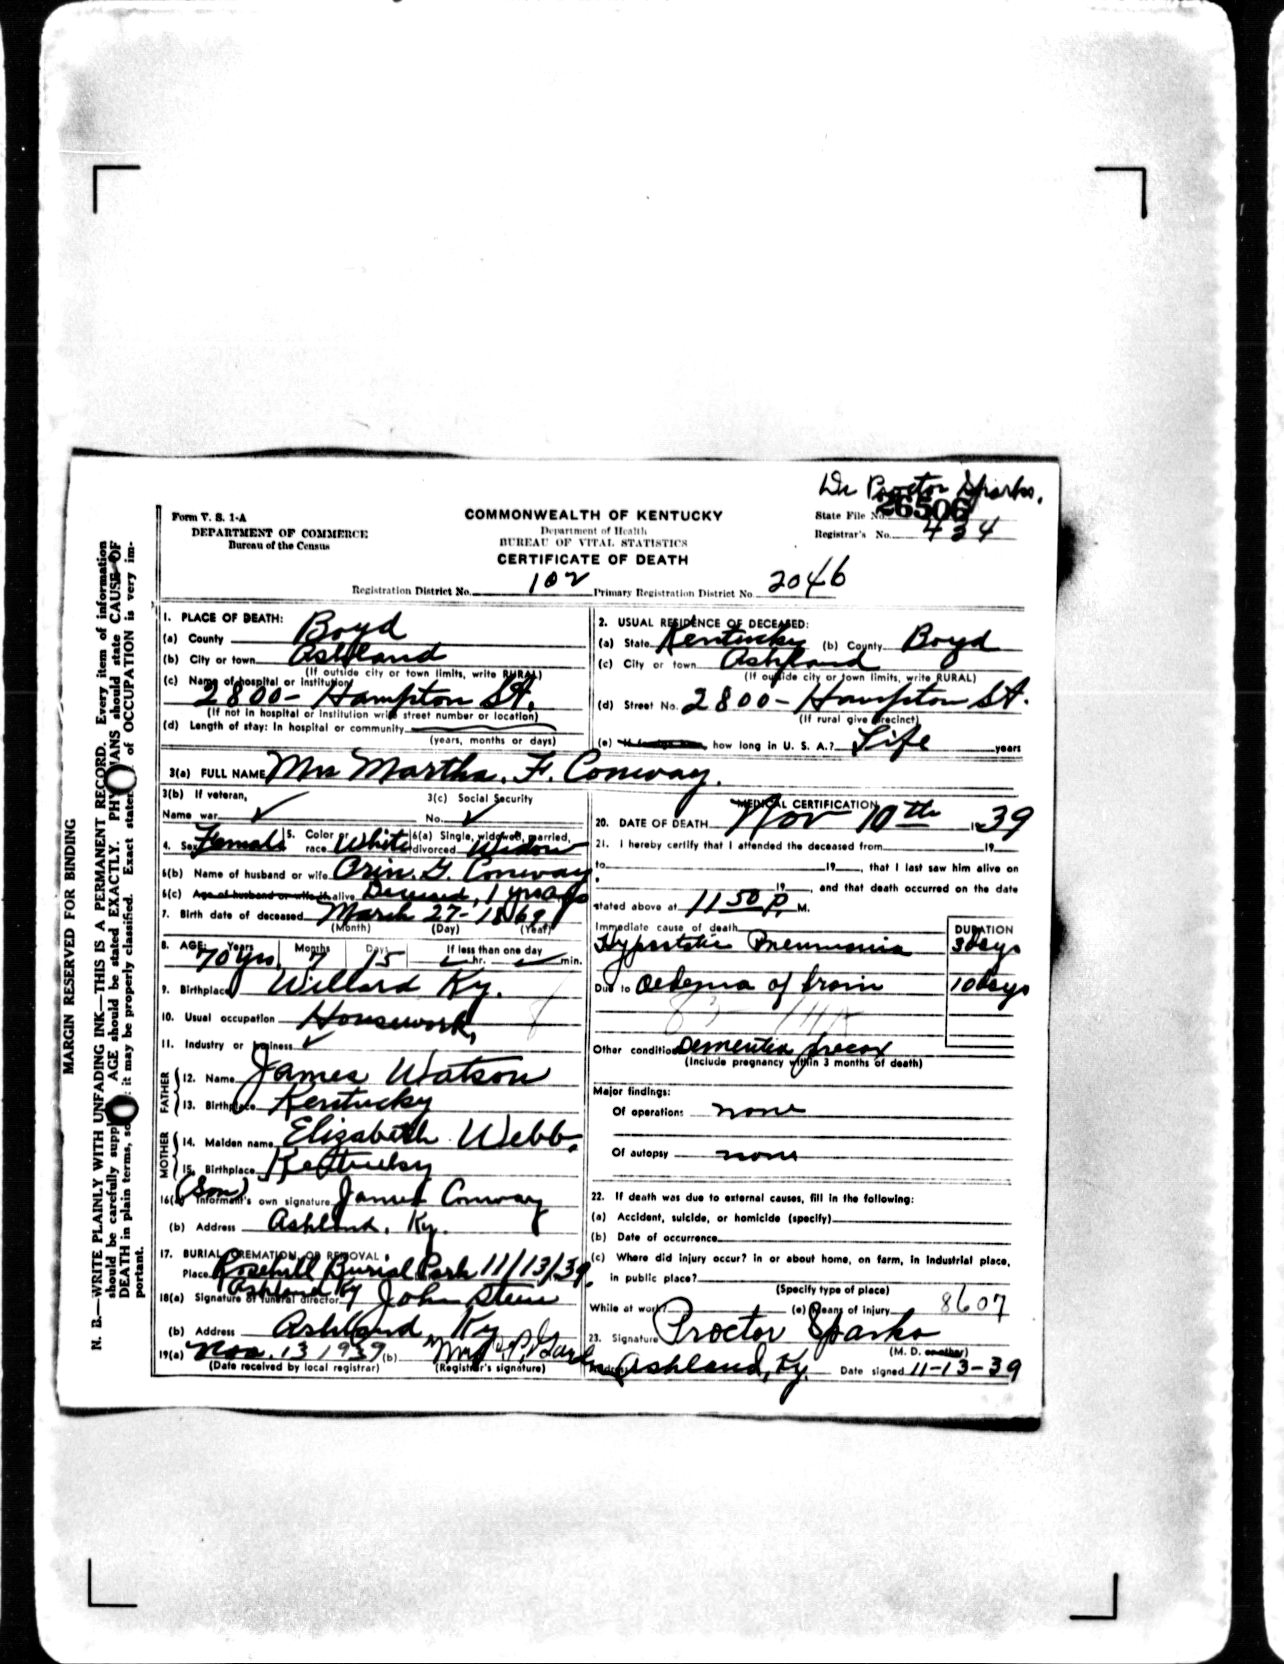 Dr Proctor Sparks.
Form V. S. 1-A
DEPARTMENT OF COMMERCE
Bureau of the Census
COMMONWEALTH OF KENTUCKY
Department of Health
BUREAU OF VITAL STATISTICS
CERTIFICATE OF DEATH
State File No. 26506
Registrar's No. 434
Registration District No. 102 Primary Registration District No. 2046
MARGIN RESERVED FOR BINDING
N. B.—WRITE PLAINLY WITH UNFADING INK—THIS IS A PERMANENT RECORD. Every item of information
should be carefully supp AGE should be stated EXACTLY. PHY IANS should state CAUSE OF
DEATH in plain terms, so it may be properly classified. Exact state of OCCUPATION is very im-
portant.
1. PLACE OF DEATH:
(a) County Boyd
(b) City or town Ashland
(If outside city or town limits, write RURAL)
(c) Name of hospital or institution
2800- Hampton St.
(If not in hospital or institution write street number or location)
(d) Length of stay: In hospital or community
(years, months or days)
2. USUAL RESIDENCE OF DECEASED:
(a) State Kentucky (b) County Boyd
(c) City or town Ashland
(If outside city or town limits, write RURAL)
(d) Street No. 2800- Hampton St.
(If rural give precinct)
(e) If foreign born, how long in U. S. A.? Life years
3(a) FULL NAME Mrs Martha. F. Conway.
3(b) If veteran, 3(c) Social Security
Name war ✓ No. ✓
4. Sex Female 5. Color or race White 6(a) Single, widowed, married, divorced Widow
6(b) Name of husband or wife Orin. G. Conway
6(c) Age of husband or wife if alive Deceased, 1 yr ago
7. Birth date of deceased March 27- 1869
(Month) (Day) (Year)
8. AGE: Years Months Days If less than one day
70 yrs. 7 15 hr. min.
9. Birthplace Willard Ky.
10. Usual occupation Housework,
11. Industry or business ✓
FATHER
12. Name James Watson
13. Birthplace Kentucky
MOTHER
14. Maiden name Elizabeth Webb.
15. Birthplace Kentucky
(Son)
16(a) Informant's own signature James Conway
(b) Address Ashland, Ky.
17. BURIAL, CREMATION, OR REMOVAL
Place Rosehill Burial Park 11/13/39.
Ashland Ky
18(a) Signature of funeral director John Steen
(b) Address Ashland Ky
19(a) Nov. 13 1939 (b) Mrs
(Date received by local registrar) (Registrar's signature)
MEDICAL CERTIFICATION
20. DATE OF DEATH Nov 10th 1939
21. I hereby certify that I attended the deceased from 19
to 19, that I last saw him alive on
19, and that death occurred on the date
stated above at 11 50 P. M.
Immediate cause of death DURATION
Hypostatic Pneumonia 3 days
Due to Oedema of brain 10 days
Other conditions Dementia precox
(Include pregnancy within 3 months of death)
Major findings:
Of operations none
Of autopsy none
22. If death was due to external causes, fill in the following:
(a) Accident, suicide, or homicide (specify)
(b) Date of occurrence
(c) Where did injury occur? In or about home, on farm, in industrial place,
in public place?
(Specify type of place)
While at work? (e) Means of injury 8607
23. Signature Proctor Sparks
(M. D. or other)
Address Ashland, Ky. Date signed 11-13-39